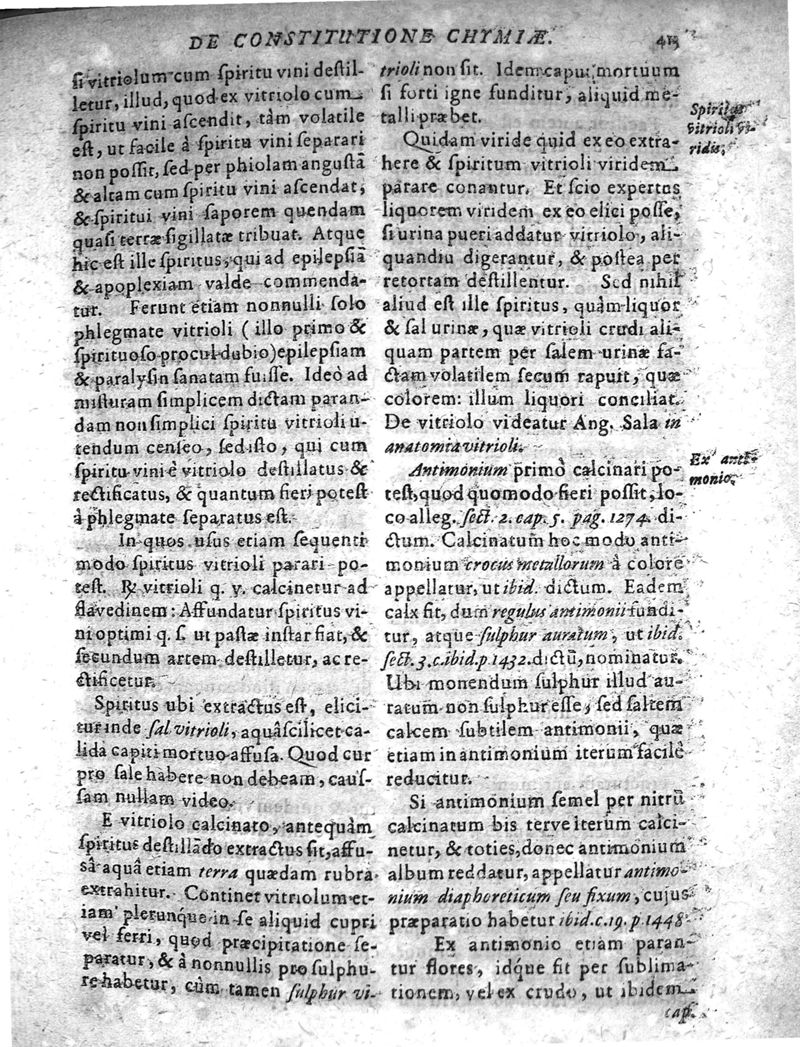 DE CONSTITUTIONE CHYMIÆ. 413
si vitriolum cum spiritu vini destil-
letur, illud, quod ex vitriolo cum
spiritu vini ascendit, tàm volatile
est, ut facile à spiritu vini separari
non possit, sed per phiolam angustã
& altam cum spiritu vini ascendat,
& spiritui vini saporem quendam
quasi terræ sigillatæ tribuat. Atque
hic est ille spiritus, qui ad epilepsiã
& apoplexiam valde commenda-
tur. Ferunt etiam nonnulli solo
phlegmate vitrioli ( illo primo &
spirituoso procul dubio) epilepsiam
& paralysin sanatam fuisse. Ideò ad
misturam simplicem dictam paran-
dam non simplici spiritu vitrioli u-
tendum censeo, sed isto, qui cum
spiritu vini è vitriolo destillatus &
rectificatus, & quantum fieri potest
à phlegmate separatus est.
In quos usus etiam sequenti
modo spiritus vitrioli parari po-
test. ℞ vitrioli q. v. calcinetur ad
flavedinem: Affundatur spiritus vi-
ni optimi q. s. ut pastæ instar fiat, &
secundum artem destilletur, ac re-
ctificetur.
Spiritus ubi extractus est, elici-
tur inde sal vitrioli, aquâ scilicet ca-
lidâ capiti mortuo affusa. Quod cur
pro sale habere non debeam, caus-
sam nullam video.
E vitriolo calcinato, antequàm
spiritus destillãdo extractus sit, affu-
sâ aquâ etiam terra quædam rubra
extrahitur. Continet vitriolum et-
iam plerunque in se aliquid cupri
vel ferri, quod præcipitatione se-
paratur, & à nonnullis pro sulphu-
re habetur, cùm tamen sulphur vi-
trioli non sit. Idem caput mortuum
si forti igne funditur, aliquid me-
talli præbet.
Quidam viride quid ex eo extra-
here & spiritum vitrioli viridem
parare conantur. Et scio expertus
liquorem viridem ex eo elici posse,
si urina pueri addatur vitriolo, ali-
quandiu digerantur, & postea per
retortam destillentur. Sed nihil
aliud est ille spiritus, quàm liquor
& sal urinæ, quæ vitrioli crudi ali-
quam partem per salem urinæ fa-
ctam volatilem secum rapuit, quæ
colorem illum liquori conciliat.
De vitriolo videatur Ang. Sala in
anatomia vitrioli.
Antimonium primò calcinari po-
test, quod quomodo fieri possit, lo-
co alleg. sect. 2. cap. 5. pag. 1274. di-
ctum. Calcinatum hoc modo anti-
monium crocus metallorum à colore
appellatur, ut ibid. dictum. Eadem
calx fit, dum regulus antimonii fundi-
tur, atque sulphur auratum, ut ibid.
sect. 3. c. ibid. p 1432. dictũ, nominatur.
Ubi monendum sulphur illud au-
ratum non sulphur esse, sed saltem
calcem subtilem antimonii, quæ
etiam in antimonium iterum facilè
reducitur.
Si antimonium semel per nitrũ
calcinatum bis terve iterùm calci-
netur, & toties, donec antimonium
album reddatur, appellatur antimo-
nium diaphoreticum seu fixum, cujus
præparatio habetur ibid. c. 19. p. 1448.
Ex antimonio etiam paran-
tur flores, idq́ue fit per sublima-
tionem, vel ex crudo, ut ibidem
cap.
Spiritus
vitrioli vi-
ridis.
Ex anti-
monio.